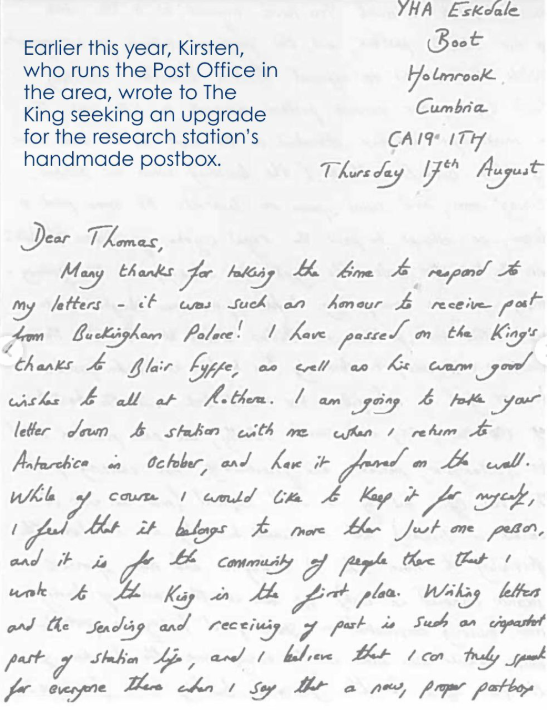 YHA Eskdale
Boot
Holmrook
Cumbria
CA19 1TH
Thursday 17th August
Earlier this year, Kirsten,
who runs the Post Office in
the area, wrote to The
King seeking an upgrade
for the research station's
handmade postbox.
Dear Thomas,
Many thanks for taking the time to respond to
my letters - it was such an honour to receive post
from Buckingham Palace! I have passed on the King's
thanks to Blair Fyffe, as well as his warm good
wishes to all at Rothera. I am going to take your
letter down to station with me when I return to
Antarctica in October, and have it framed on the wall.
While of course I would like to keep it for myself,
I feel that it belongs to more than just one person,
and it is for the community of people there that I
wrote to the King in the first place. Writing letters
and the sending and receiving of post is such an important
part of station life, and I believe that I can truly speak
for everyone there when I say that a new, proper postbox